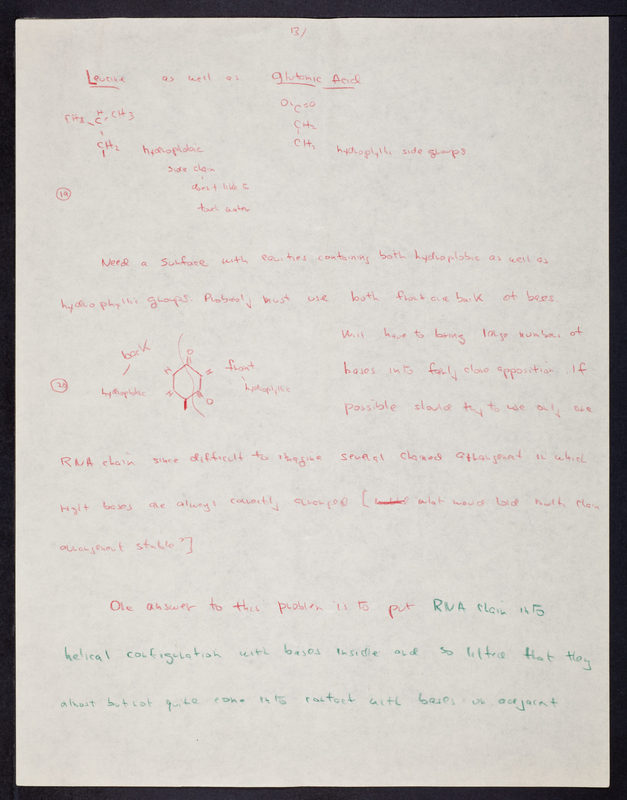 13/
Leucine as well as Glutamic Acid
CH3 H CH3
C
CH2
hydrophobic
side chain
don't like to
touch water
O C=O
CH2
CH2
hydrophyllic side groups
(19)
Need a surface with cavities containing both hydrophobic as well as
hydrophyllic groups. Probably must use both front and back of bases.
Will have to bring large number of
bases into fairly close apposition. If
possible should try to use only one
(20)
back
hydrophobic
front
hydrophyllic
O
N
N
O
RNA chain since difficult to imagine several chained arrangement in which
right bases are always correctly arranged [ what would hold multi chain
arrangement stable?]
One answer to this problem is to put RNA chain into
helical configuration with bases inside and so tilted that they
almost but not quite come into contact with bases on adjacent